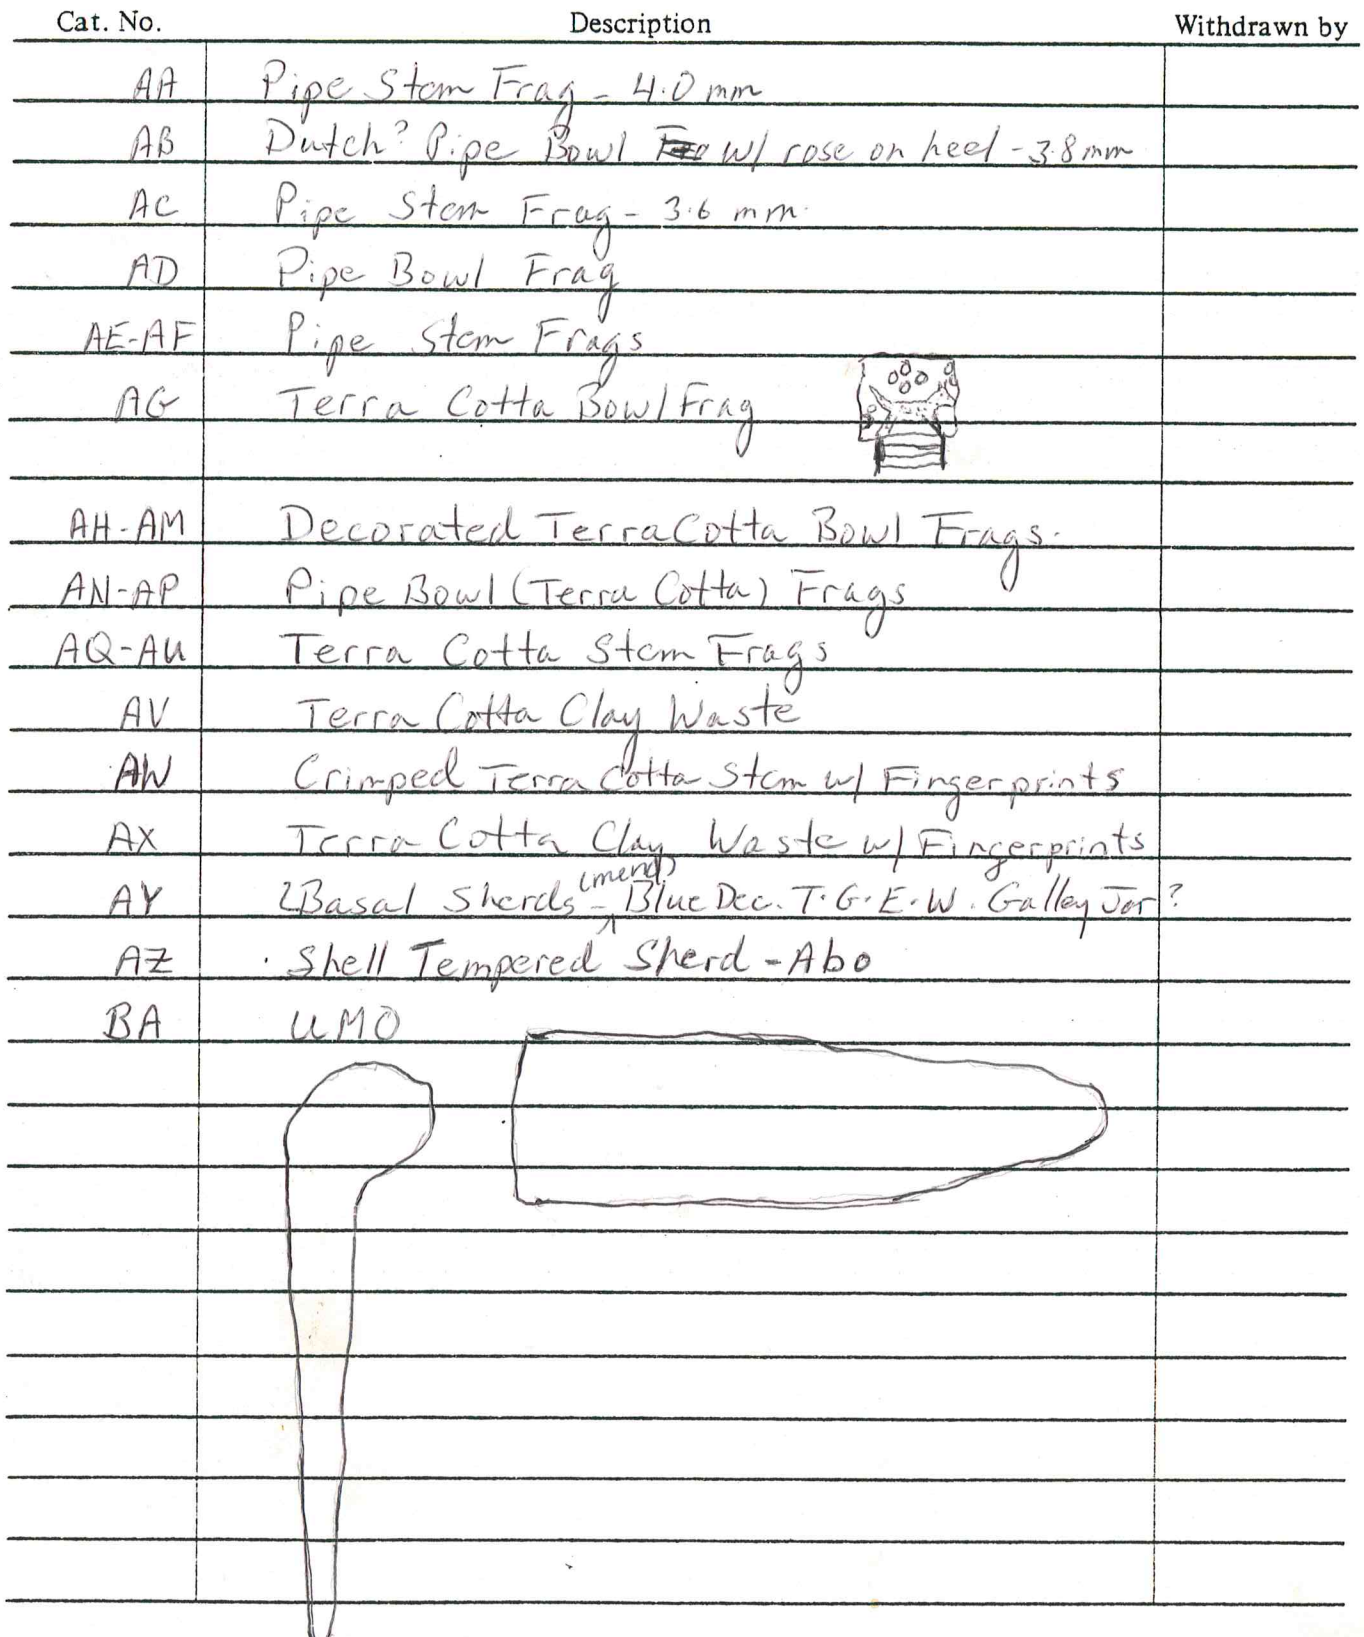 Cat. No. Description Withdrawn by
AA Pipe Stem Frag - 4.0 mm
AB Dutch? Pipe Bowl w/ rose on heel - 3.8mm
AC Pipe Stem Frag - 3.6 mm.
AD Pipe Bowl Frag
AE-AF Pipe Stem Frags
AG Terra Cotta Bowl Frag
AH-AM Decorated Terra Cotta Bowl Frags.
AN-AP Pipe Bowl (Terra Cotta) Frags
AQ-AU Terra Cotta Stem Frags
AV Terra Cotta Clay Waste
AW Crimped Terra Cotta Stem w/ Fingerprints
AX Terra Cotta Clay Waste w/ Fingerprints
(mend)
AY 2 Basal Sherds - Blue Dec. T.G.E.W. Galley Jar?
AZ Shell Tempered Sherd - Abo
BA UMO